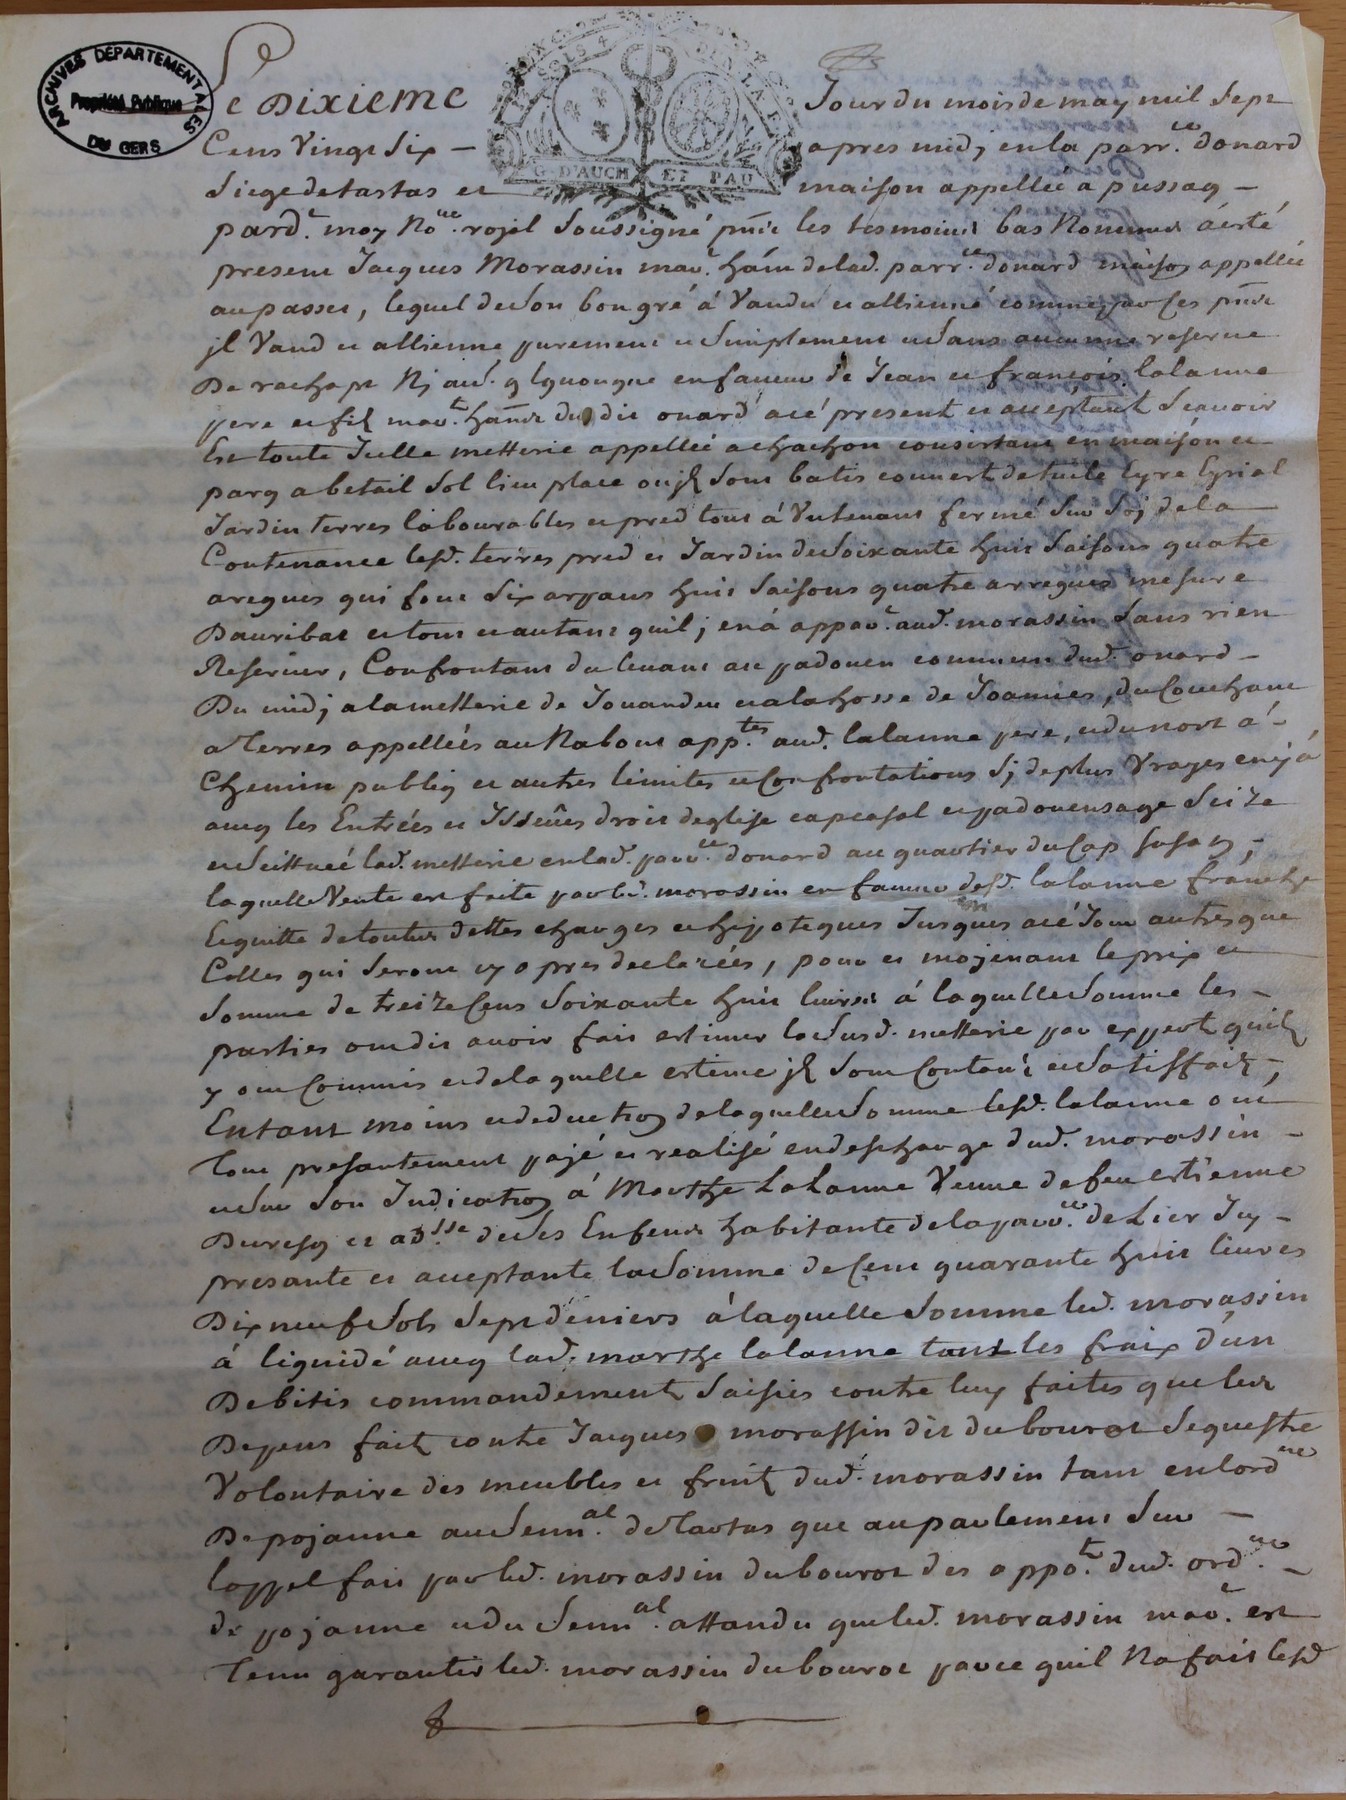 ARCHIVES DÉPARTEMENTALES
Propriété Publique
DU GERS
SOLS 4
G. D'AUCH ET PAU
Le Dixieme Jour du mois de may mil sept
Cens Vingt six — apres midj en la parr.ce donard
siege de tartas et maison appellée a pussaq —
pard.t moy No.re rojal soussigné pñts les tesmoins bas Nommés a esté
present Jacques Morassin mar.t hãnt de lad. parr.ce donard maison appellée
au passet, lequel de son bon gré á Vandu et allienné comme par ces pñtes
jl Vand et allienne purement et simplement et sans aucune reserve
De rachapt Nj aud. qlquonque en faveur de Jean et françois lalanne
pere et fils mar.ts hãnts du dit onard acé present et acceptant scavoir
Est toute Icelle metterie appellée a chachon consistant en maison et
parq a betail sol lieu place ou jls sont batis couvert de tuile Eyre Eyrial
Jardin terres labourables et pred tout á Vntenant fermé sur soj de la
Contenance lesd. terres pred et Jardin de soixante huit saisons quatre
aregues qui font six arpans huit saisons quatre arregues mesure
Dauribat et tout et autant quil j en á appar.t aud. morassin sans rien
Reserver, Confrontant du levant au padouen commun dud. onard —
Du midj a la metterie de Jouandeu et a lahosse de Joamies, du Couchant
a terres appellées au Nabout app.tes aud. lalanne pere, et du nort á
Chemin publiq et autres limites et Confrontations sj de plus Vrayes en y á
aveq les Entrées et Issües droit deglise capcasal et padouensage size
et scittuée lad. metterie en lad. parr.ce donard au quartier du Cap susan,
laquelle Vente est faite par led. morassin en faveur desd. lalanne franche
Et quitte de toutes dettes charges et hipoteques Jusques acé Jour autres que
Celles qui seront cy apres declarées, pour et mojenant le prix et
somme de treize Cens soixante huit livres á laquelle somme les —
parties ont dit avoir fait estimer la susd. metterie par experts quils
y ont Commis et de laquelle estime jls sont Contans et satisffaits,
Entant moins et deduction de laquelle somme lesd. lalanne ont
tout presantement pajé et realisé en descharge dud. morassin —
et sur son Indication á Marthe Lalanne Veuve de feu estienne
Duvesq et ad.sse de ses Enfens habitante de la parr.ce de Lier Icy —
presante et acceptante la somme de Cent quarante huit livres
Dix neuf sols sept deniers á laquelle somme led. morassin
á liquidé aveq lad. marthe lalanne tant les fraix d'un
Debitis commandement saisies contre luy faites que les
Depens faits contre Jacques morassin dit du bourot sequestre
Volontaire des meubles et fruits dud. morassin tant en lord.re
De pojanne au senn.al de tartas que au parlement sur —
lappel fait par led. morassin du bourot des appo.ts dud. ord.re —
de pojanne et du senn.al attandu que led. morassin mar.t est
tenu garantir led. morassin du bourot parce quil Na fait lesd